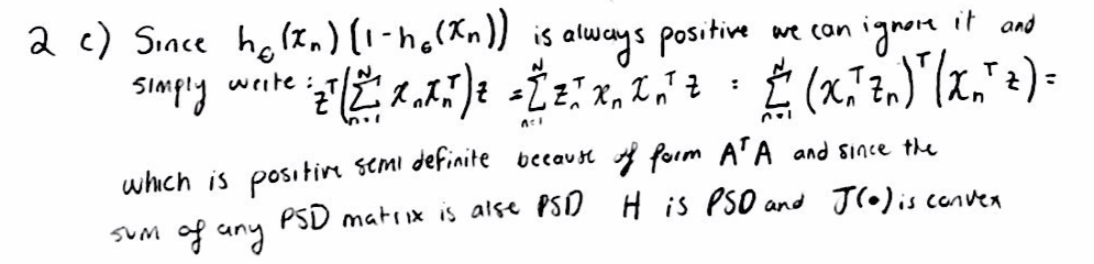 2 c) Since h_θ(x_n)(1-h_θ(x_n)) is always positive we can ignore it and
simply write : z^T(∑_{n=1}^N x_n x_n^T)z = ∑_{n=1}^N z_n^T x_n x_n^T z = ∑_{n=1}^N (x_n^T z_n)^T (x_n^T z) =
which is positive semi definite because of form A^T A and since the
sum of any PSD matrix is alse PSD H is PSD and J(•) is convex